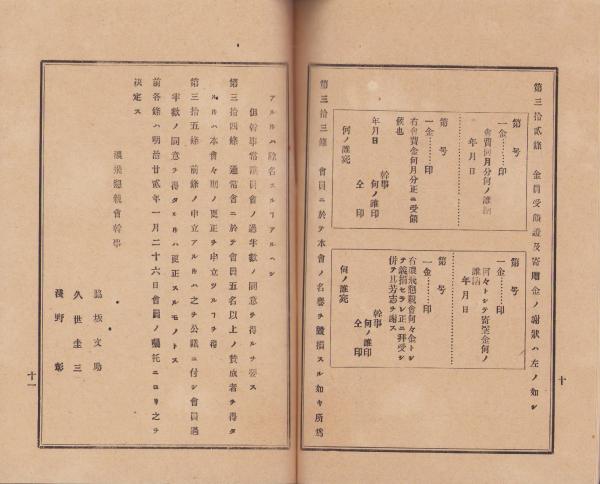 第三拾貳條　金員受領證及寄贈金ノ謝狀ハ左ノ如シ
第　號
一金………印
會費何月分何ノ誰納
年　月　日
第　號
一金………印
右會費金何月分正ニ受領
候也
年月日
幹事
何ノ誰印
仝　印
何ノ誰宛
第　號
一金………印
何々トシテ寄贈金何ノ
誰納
年　月　日
第　號
一金………印
右濃飛懇親會何々金トシ
テ義捐セラレ正ニ拜受シ
併テ其芳志ヲ謝ス
幹事
何ノ誰印
仝　印
何ノ誰宛
第三拾三條　會員ニ於テ本會ノ名譽ヲ毀損スル如キ所爲
十
アルトハ除名スルヿアルヘシ
但幹事常議員會ノ過半數ノ同意ヲ得ルヲ要ス
第三拾四條　通常會ニ於テ會員五名以上ノ賛成者ヲ得タ
ルトハ本會々則ノ更正ヲ申立ツルヿヲ得
第三拾五條　前條ノ申立アルトハ之ヲ公議ニ付シ會員過
半數ノ同意ヲ得タルトハ更正スルモノトス
前各條ハ明治廿貳年一月二十六日會員ノ囑托ニヨリ之ヲ
決定ス
濃飛懇親會幹事
脇坂文助
久世圭三
淺野　彰
十一